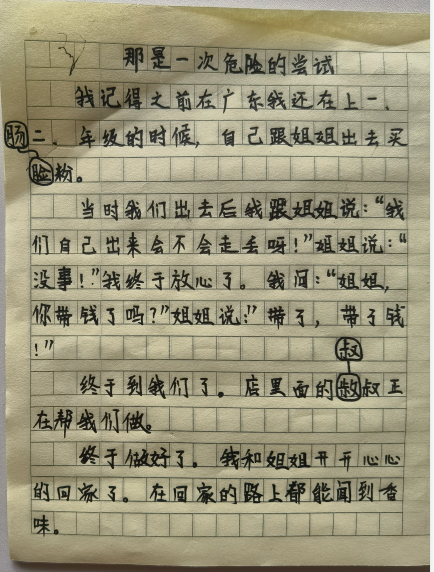 那是一次危险的尝试
我记得之前在广东我还在上一、
二、年级的时候，自己跟姐姐出去买
肠
脸粉。
当时我们出去后我跟姐姐说：“我
们自己出来会不会走丢呀！”姐姐说：“
没事！”我终于放心了。我问：“姐姐，
你带钱了吗？”姐姐说：”带了，带了钱
！”
叔
终于到我们了。店里面的敊叔正
在帮我们做。
终于做好了。我和姐姐开开心心
的回家了。在回家的路上都能闻到香
味。